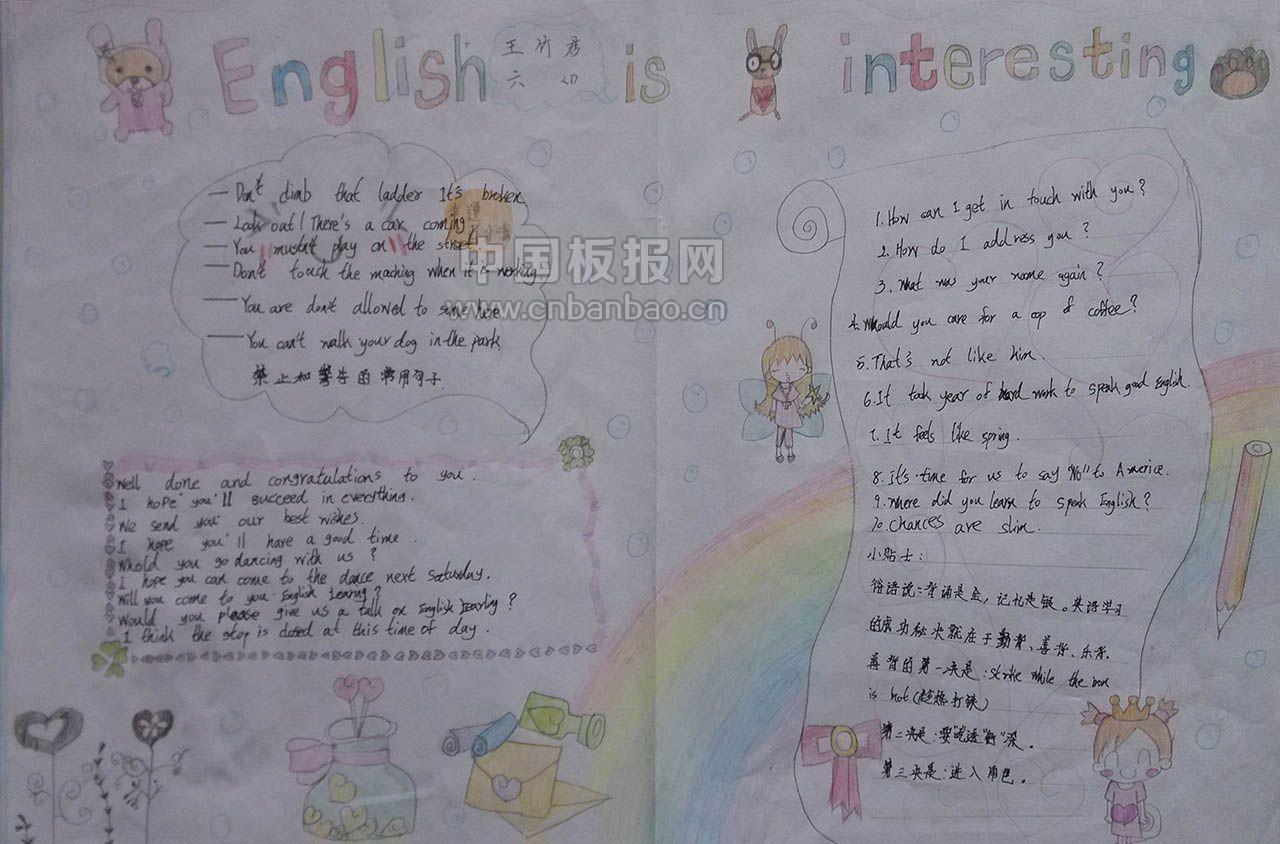 English is interesting
王竹秀
六
— Don't climb that ladder It's broken
— Look out! There's a car coming
— You mustn't play on the street
— Don't touch the maching when it is working.
— You are don't allowed to here
— You can't walk your dog in the park.
禁止和警告的常用句子.
Well done and congratulations to you.
I hope you'll succeed in everything.
We send you our best wishes.
I hope you'll have a good time.
Whold you go dancing with us?
I hope you can come to the dance next Saturday.
Will you come to you English
Would you please give us a talk on English
I think the stop is at this time of day.
1. How can I get in touch with you?
2. How do I address you?
3. What was your name again?
4. Whould you care for a cop of coffee?
5. That's not like him.
6. It took year of hard work to speak good English.
7. It feels like spring.
8. It's time for us to say "No" to Americe.
9. Where did you learn to speak English?
10. Chances are slim.
小贴士:
俗语说:背诵是金,记忆是银。英语学习
的成功秘决就在于勤背、善背、乐背.
善背的第一决是:strike while the iron
is hot (趁热打铁)
第二决是:要"说透""听"深。
第三决是:进入角色。
中国板报网
www.cnbanbao.cn